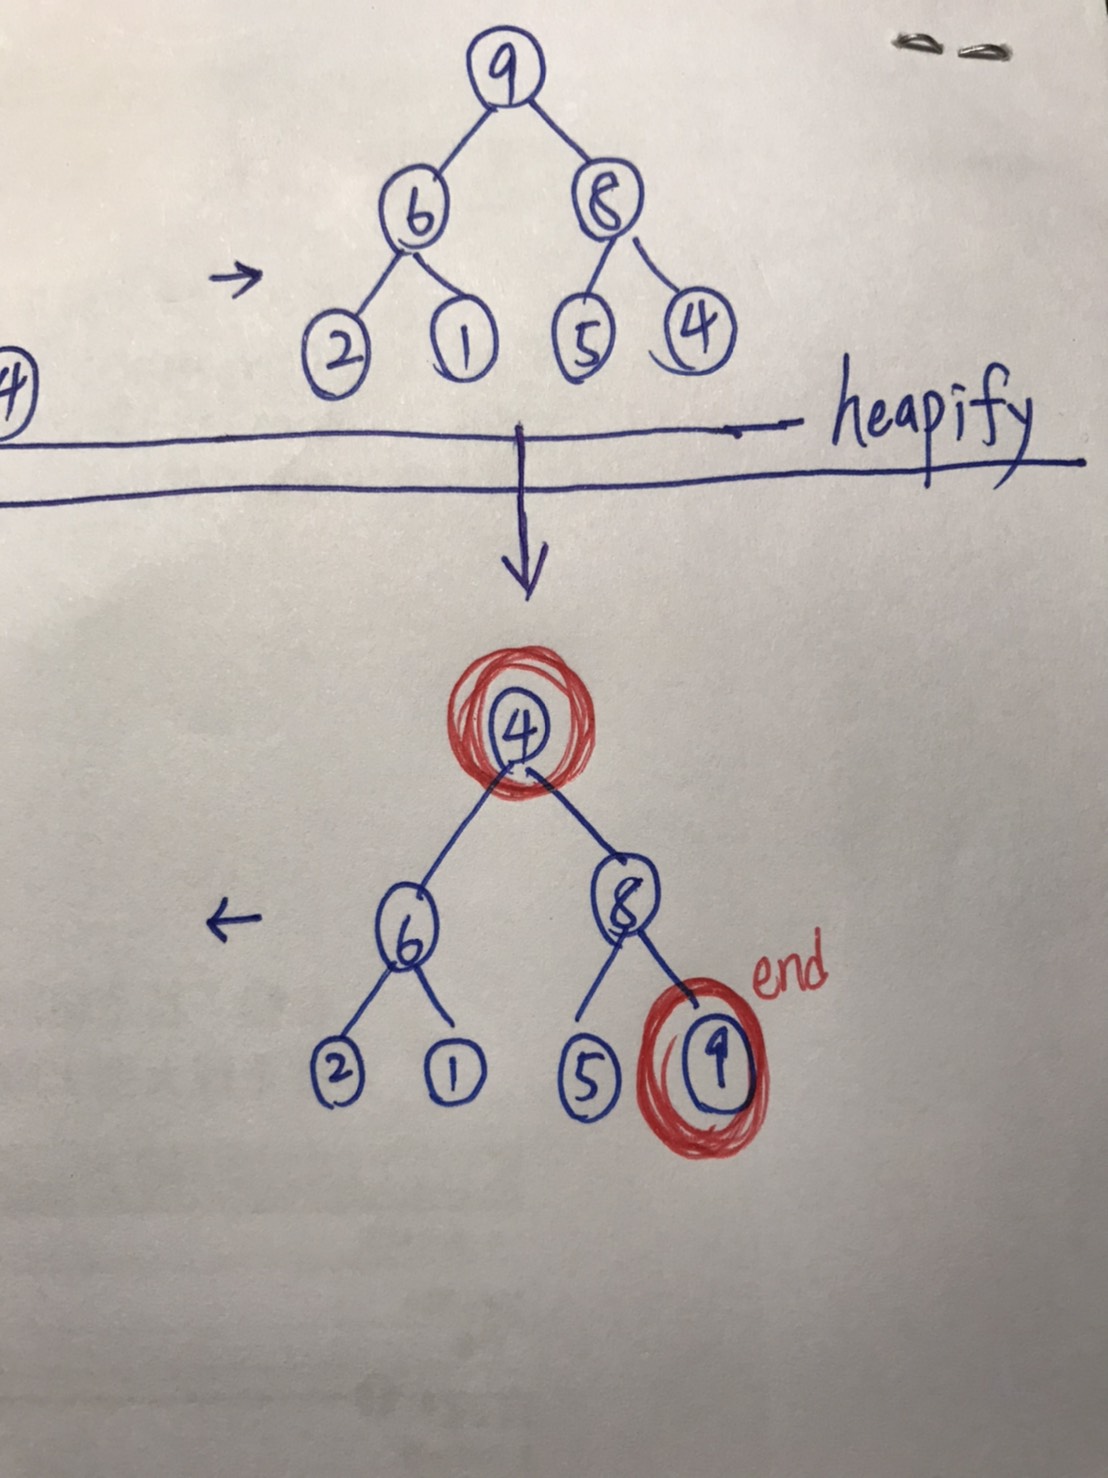 9
6 8
→
2 1 5 4
4
heapify
4
6 8
←
end
2 1 5 9